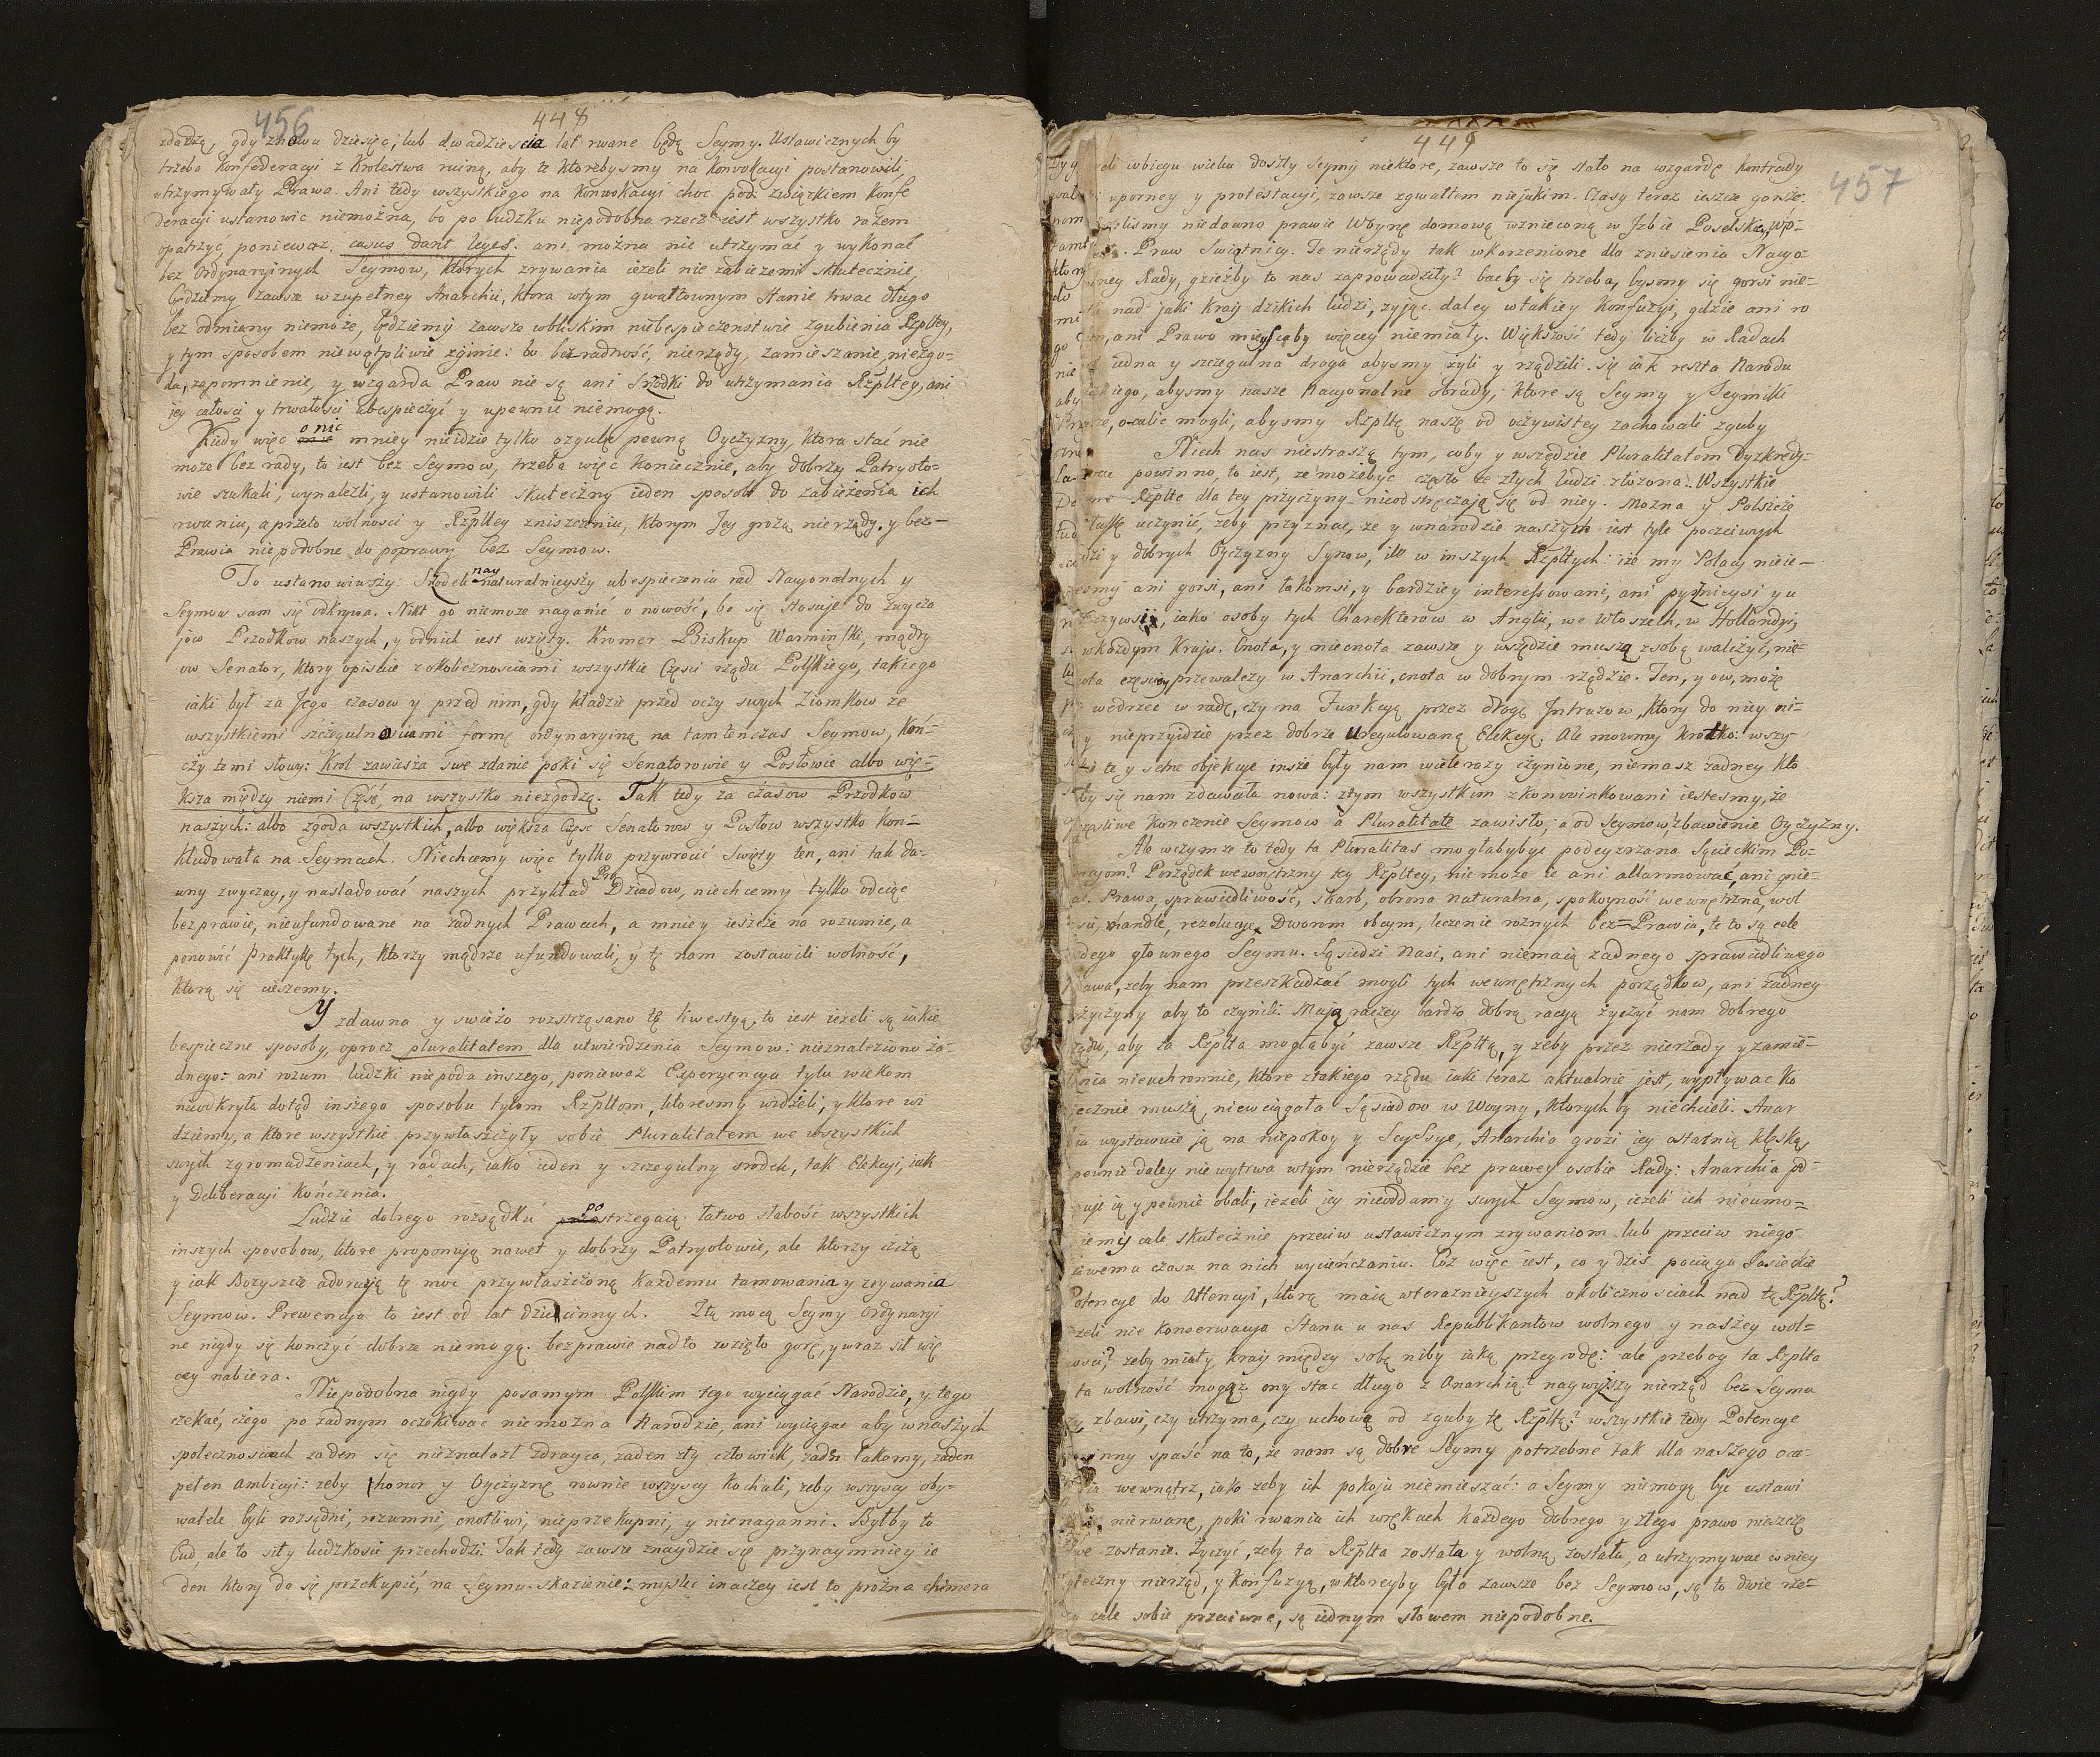 456
448
zdadzą, gdy znowu dziesięć, lub dwadziescia lat rwane będą Seymy. Ustawicznych by
trzeba Konfederacyi z Krolestwa ruiną, aby te ktorebysmy na Konwokacyi postanowili,
utrzymywały Prawa. Ani tedy wszystkiego na Konwokacyi choc pod związkiem Konfe
deracyi ustanowic niemożna, bo po ludzku niepodobna rzecz iest wszystko razem
opatrzyć, ponieważ casus dant leges. ani można nie utrzymać y wykonać
bez Ordynaryinych Seymow, ktorych zrywania ieżeli nie zabieżemy skutecznie,
będziemy zawsze w zupełney Anarchii, ktora w tym gwałtownym stanie trwac długo
bez odmiany niemoże, będziemy zawsze w bliskim niebespieczenstwie zgubienia Rzpltey,
y tym sposobem niewątpliwie zginie: bo bezradność, nierządy, zamieszanie, niezgo-
da, zapomnienie, y wzgarda Praw nie są ani srzodki do utrzymania Rzpltey, ani
jey całosci y trwałosci ubespieczyć y upewnić niemogą.
Kiedy więc o nic mniey nieidzie tylko o zgubę pewną Oyczyzny, ktora stać nie
może bez rady, to iest bez Seymow, trzeba więc koniecznie, aby dobrzy Patryoto-
wie szukali, wynaleźli, y ustanowili skuteczny ieden sposob do zabieżenia ich
rwaniu, a przeto wolnosci y Rzpltey zniszczeniu, ktorym Jey grożą nierządy, y bez-
Prawia niepodobne do poprawy bez Seymow.
To ustanowiwszy. Srzodek nay naturalnieyszy ubespieczenia rad Nacyonalnych y
Seymow sam się odkrywa. Nikt go niemoże naganić o nowość, bo się stosuje do zwycza
jow Przodkow naszych, y od nich iest wzięty. Kromer Biskup Warminski, mądry
ow Senator, ktory opisuie z okolicznosciami wszystkie Części rządu Polskiego, takiego
iaki był za Jego czasow y przed nim, gdy kładzie przed oczy swych Ziomkow ze
wszystkiemi szczegulnosciami formę ordynaryiną na tamtenczas Seymow, Koń-
czy temi słowy: Krol zawiesza swe zdanie poki się Senatorowie y Posłowie albo wię-
ksza między niemi Część, na wszystko niezgodzą. Tak tedy za czasow Przodkow
naszych: albo zgoda wszystkich, albo większa Częsc Senatorow y Posłow wszystko kon-
kludowała na Seymach. Niechcemy więc tylko przywrocić Swięty ten, ani tak da-
wny zwyczay, y nasladować naszych przykład Pra Dziadow, niechcemy tylko odciąc
bezprawie, nieufundowane na żadnych Prawach, a mniey ieszcze na rozumie, a
ponowić praktykę tych, ktorzy mądrze ufundowali, y tę nam zostawili wolność,
ktorą się cieszemy.
Y zdawna y swieżo rozstrząsano tę kwestyą, to iest ieżeli są iakie
bespieczne sposoby, oprocz pluralitatem dla utwierdzenia Seymow: nieznaleziono ża-
dnego: ani rozum ludzki niepoda inszego, ponieważ Experyencya tylu wiekom
nieodkryła dotąd inszego sposobu tylom Rzpltom, ktoresmy widzieli, y ktore wi
dziemy, a ktore wszystkie przywłaszczyły sobie Pluralitatem we wszystkich
swych zgromadzeniach, y radach, iako ieden y szczegulny srodek, tak Elekcyi, iak
y Deliberacyi kończenia.
Ludzie dobrego rozsądku postrzegaią łatwo słabość wszystkich
inszych sposobow, ktore proponują nawet y dobrzy Patryotowie, ale ktorzy czczą
y iak Bożyszcze adorują tę moc przywłaszczoną każdemu tamowania y zrywania
Seymow. Prewencya to iest od lat dziecinnych. Złą mocą Seymy Ordynaryi
ne nigdy się konczyć dobrze niemogą. bezprawie nadto wzięło gorę, y wraz sił wię
cey nabiera.
Niepodobna nigdy po samym Polskim tego wyciągać Narodzie, y tego
czekać, czego po żadnym oczekiwac niemożna Narodzie, ani wyciągac aby w naszych
społecznosciach żaden się nieznalazł zdrayca, żaden zły człowiek, żaden łakomy, żaden
pełen ambicyi: żeby honor y Oyczyznę rownie wszyscy kochali, żeby wszyscy oby-
watele byli rozsądni, rozumni, cnotliwi, nieprzekupni, y nienaganni. Byłby to
Cud ale to siły ludzkosci przechodzi. Tak tedy zawsze znaydzie się przynaymniey ie
den ktory da się przekupić, na Seymu skażenie: myslec inaczey iest to prożna chimera
449
457
żeli w biegu wielu doszły Seymy niektore, zawsze to się stało na wzgardę kontrady
uporney y protestacyi, zawsze zgwałtem niejakim. Czasy teraz ieszcze gorsze.
niedawno prawie Woynę domową wznieconą w Izbie Poselskiey, wpo-
Praw Swiątnicy. Te nierządy tak wkorzenione dla zniesienia Nacyo-
Rady, gdzieżby to nas zaprowadziły? bacby się trzeba, bysmy się gorsi nie-
nad jaki kray dzikich ludzi, żyjąc daley w takiey konfuzyi, gdzie ani ro
, ani Prawo mieysca by więcey niemiały. Większość tedy liczby w Radach
iedna y szczegulna droga abysmy żyli y rządzili się iak reszta Narodu
, abysmy nasze Nacyonalne obrady, ktore są Seymy y Seymiki
, ocalic mogli, abysmy Rzpltę naszę od oczywistey zachowali zguby
Niech nas niestraszą tym, coby y wszędzie Pluralitatem dyzkredy-
powinno, to iest, że możebyć często ze złych ludzi złożona. Wszystkie
Rzplte dla tey przyczyny nieodstręczają się od niey. Można y Polszcze
łaskę uczynić, żeby przyznac, że y w narodzie naszym iest tyle poczciwych
y dobrych Oyczyzny Synow, ile w inszych Rzpltych: iże my Polacy nieie-
smy ani gorsi, ani łakomsi, y bardziey interessowani, ani pysznieysi y u
, iako osoby tych Charekterow w Anglii, we Włoszech, w Hollandyi,
w każdym Kraju. Cnota, y niecnota zawsze y wszędzie muszą z sobą walczyć, nie-
cnota częsciey przewalczy w Anarchii, cnota w dobrym rządzie. Ten, y ow, może
wedrzec w radę, czy na Funkcyą przez drogę Intruzow, ktory do niey ni-
y nieprzyidzie przez dobrze uregulowaną Elekcyą. Ale mowmy krotko: wszy-
te y setne objekcye insze były nam wielerazy czynione, niemasz żadney kto
by się nam zdawała nowa: z tym wszystkim z konwinkowani iestesmy, że
szczęsliwe Konczenie Seymow a Pluralitate zawisło, a od Seymow zbawienie Oyczyzny.
Ale w czymże to tedy ta Pluralitas mogłabybyc podeyzrzana Sąsieckim Po-
? Porządek wewnętrzny tey Rzpltey, nie może ie ani allarmować, ani gnie-
. Prawa, sprawiedliwość, skarb, obrona naturalna, spokoyność wewnętrzna, wol
, handle, rezolucye Dworom obcym, leczenie rożnych bez-Prawia, te to są cele
głownego Seymu. Sąsiedzi Nasi, ani niemaią żadnego sprawiedliwego
, żeby nam przeszkadzać mogli tych wewnętrznych porządkow, ani żadney
przyczyny aby to czynili. Mają raczey bardzo dobrą racyą życzyć nam dobrego
rządu, aby ta Rzplta mogłabyć zawsze Rzpltą, y żeby przez nierządy y zamie-
nieuchronnie, ktore z takiego rządu iaki teraz aktualnie jest, wypływac ko
niecznie muszą, niewciągała Sąsiadow w Woyny, ktorych by niechcieli. Anar
wystawuie ją na niepokoy y Scyssye, Anarchia grozi iey ostatnią klęską,
pewnie daley nie wytrwa w tym nierządzie bez prawey osobie Rady: Anarchia pod-
ią y pewnie obali, ieżeli iey nieoddamy swych Seymow, ieżeli ich nieumo-
cale skutecznie przeciw ustawicznym zrywaniom lub przeciw niego-
czasu na nich wycieńczaniu. Coż więc iest, co y dziś pociąga Sasieckie
Potencye do Attencyi, ktorą maią w teraznieyszych okolicznosciach nad tą Rzpltą?
nie konserwacya Stanu u nas Republikantow wolnego y naszey wol-
? żeby miały kray między sobą niby iaką przegrodę: ale przebog ta Rzplta
ta wolność mogąż ony stac długo z Anarchią? naywyższy nierząd bez Seymu
zbawi, czy utrzyma, czy uchowa od zguby tę Rzpltą? wszystkie tedy Potencye
spaść na to, że nam są dobre Seymy potrzebne tak dla naszego oca-
wewnątrz, iako żeby ich pokoju niemieszać: a Seymy niemogą byc ustawi
nierwane, poki rwania ich w rękach każdego dobrego y złego prawo niszczę
zostanie. Życzyć, żeby ta Rzplta została y wolną została, a utrzymywac w niey
nierząd, y konfuzyą, w ktoreyby była zawsze bez Seymow, są to dwie rze-
cale sobie przeciwne, są iednym słowem niepodobne.